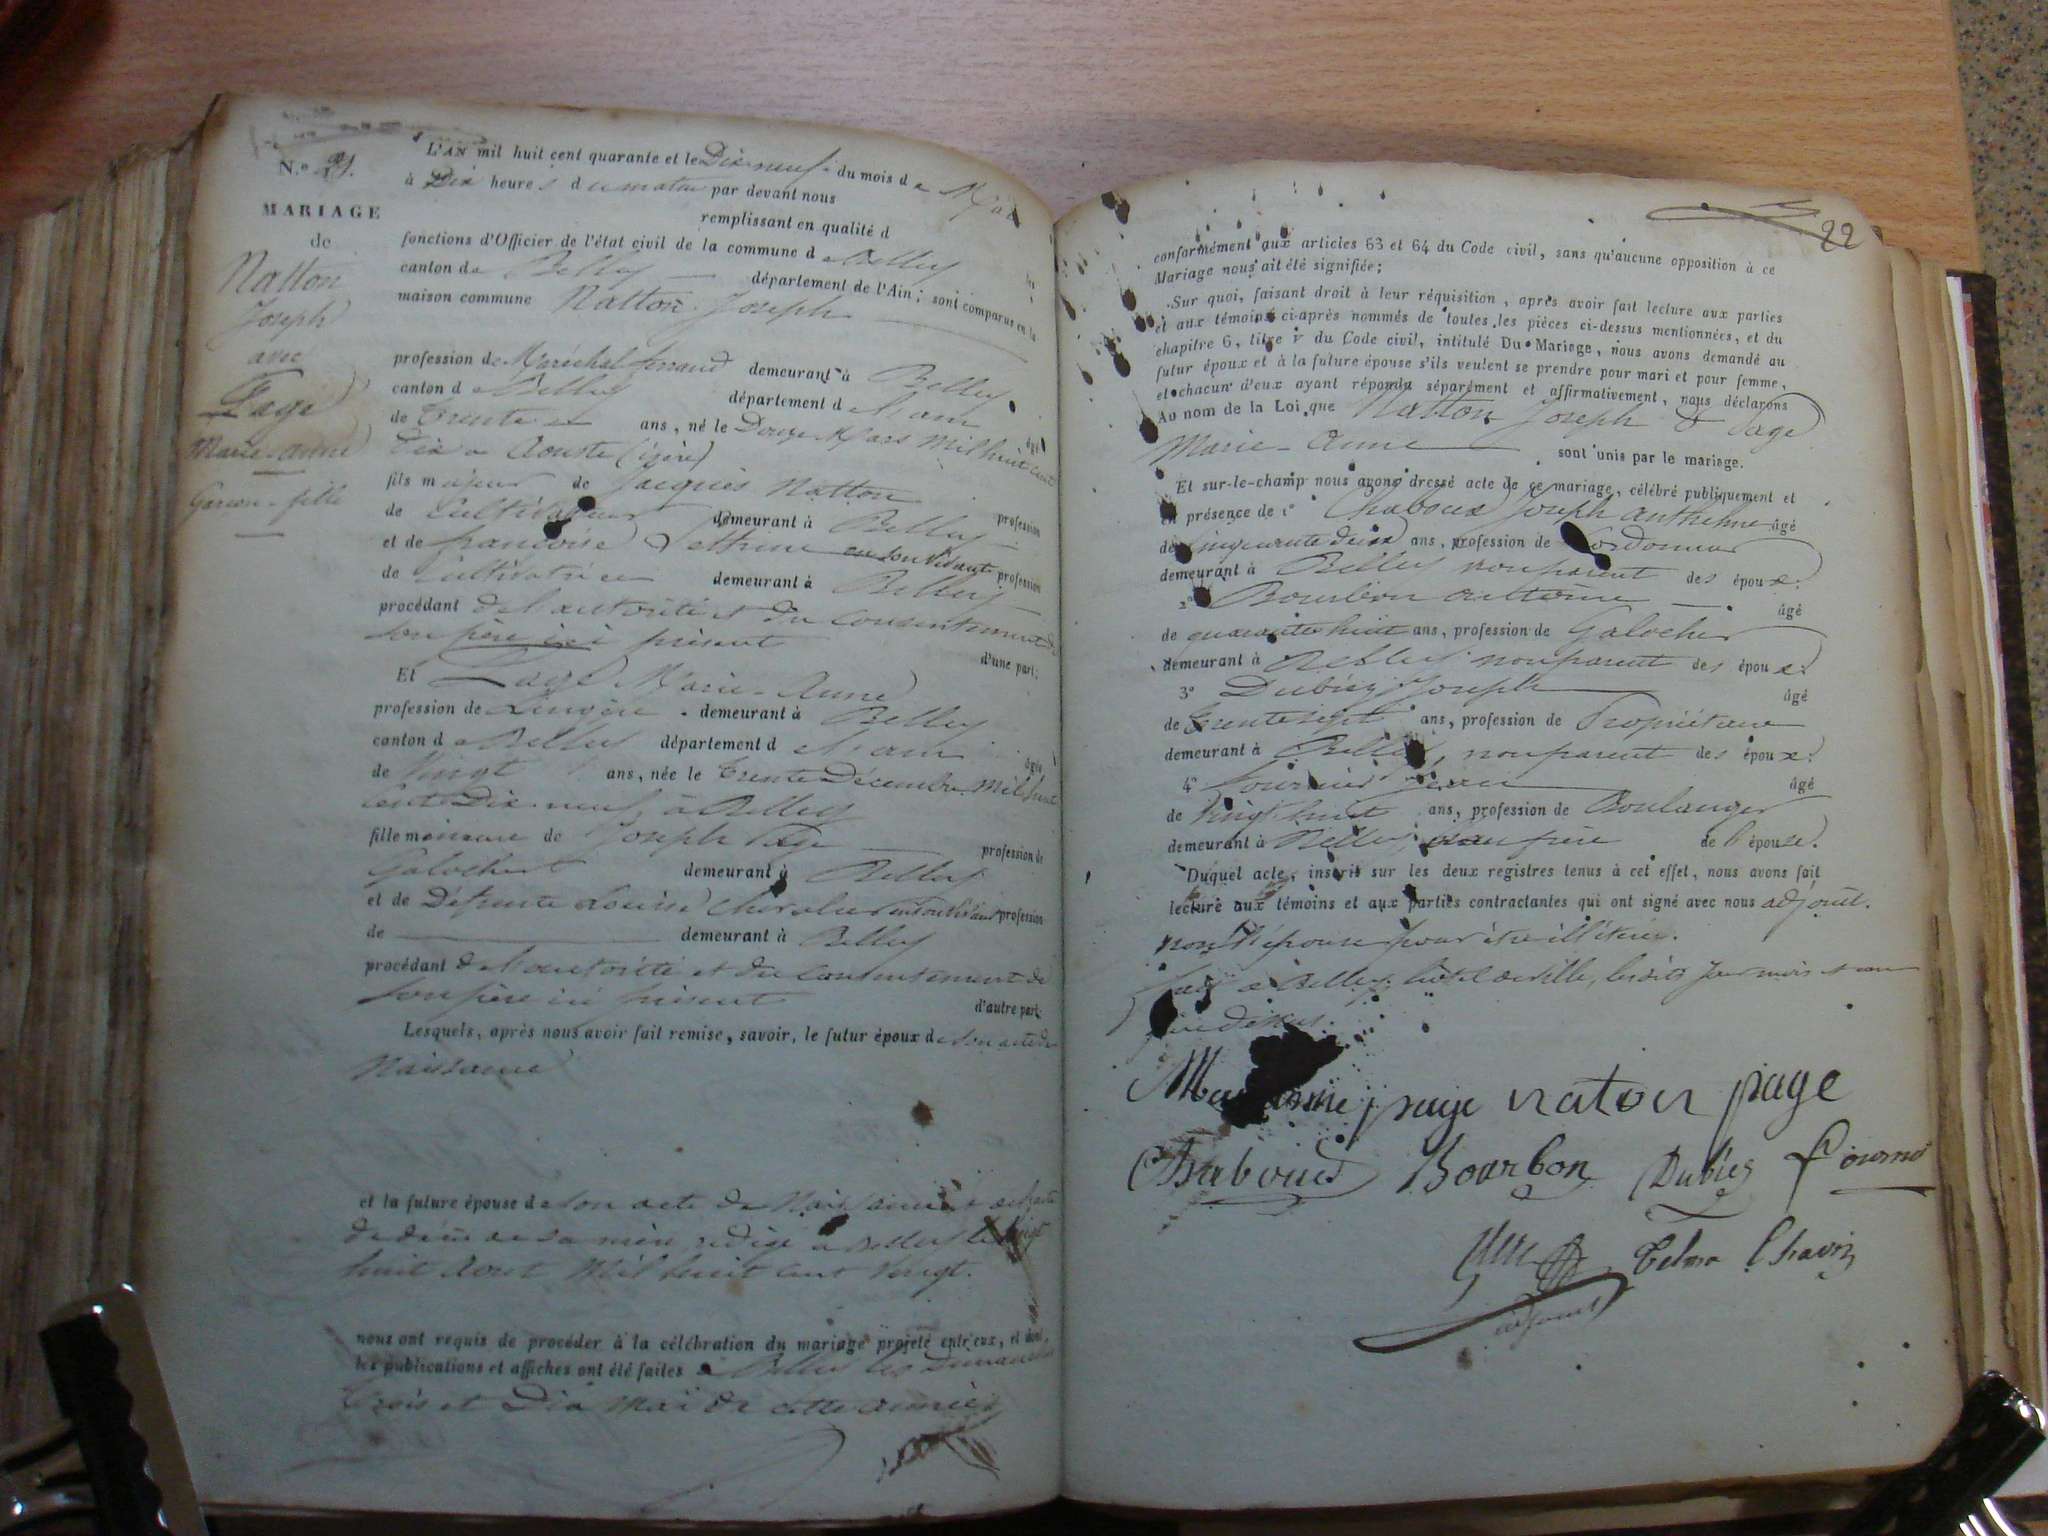 N.° 21.
MARIAGE
de
Natton
Joseph
avec
Page
Marie-anne
Garcon - fille
L'AN mil huit cent quarante et le Dix neuf du mois de Mai
à Dix heures du matin par devant nous
remplissant en qualité d
fonctions d'Officier de l'état civil de la commune de Belley
canton de Belley département de l'Ain; sont comparus en la
maison commune Natton Joseph
profession de Maréchal ferrand demeurant à Belley
canton de Belley département de l'ain âgé
de trente ans, né le Douze Mars Mil huit cent
Dix a Aouste (isère)
fils majeur de Jacques Natton profession
de Cultivateur demeurant à Belley
et de francoise profession
de Cultivatrice demeurant à Belley
procédant de l'autorité et du consentement de
son père ici présent d'une part;
Et Page Marie-Anne
profession de Lingère demeurant à Belley
canton de Belley département de l'ain âgée
de Vingt ans, née le trente Décembre Mil huit
Cent Dix-neuf à Belley
fille mineure de Joseph Page profession de
Galocher demeurant à Belley
et de Défunte Louise Chevalier profession
de demeurant à Belley
procédant de l'autorité et du consentement de
son père ici présent d'autre part;
Lesquels, après nous avoir fait remise, savoir, le futur époux de son acte de
Naissance
et la future épouse de son acte de Naissance
de décès de sa mère rédigé a Belley le Vingt
huit Aout Mil huit cent Vingt.
nous ont requis de procéder à la célébration du mariage projeté entr'eux, et dont
les publications et affiches ont été faites à Belley les Dimanches
trois et Dix Mai de cette année
22
conformément aux articles 63 et 64 du Code civil, sans qu'aucune opposition à ce
Mariage nous ait été signifiée;
Sur quoi, faisant droit à leur réquisition, après avoir fait lecture aux parties
et aux témoins ci-après nommés de toutes les pièces ci-dessus mentionnées, et du
chapitre 6, titre V du Code civil, intitulé Du Mariage, nous avons demandé au
futur époux et à la future épouse s'ils veulent se prendre pour mari et pour femme,
et chacun d'eux ayant répondu séparément et affirmativement, nous déclarons
Au nom de la Loi que Natton Joseph & Page
Marie-Anne sont unis par le mariage.
Et sur-le-champ nous avons dressé acte de ce mariage, célébré publiquement et
en présence de 1° Chaboud Joseph anthelme âgé
de cinquante deux ans, profession de Cordonnier
demeurant à Belley non parent des époux.
2° Bourbon antoine âgé
de quarante huit ans, profession de Galocher
demeurant à Belley non parent des époux.
3° Dubiez Joseph âgé
de trente sept ans, profession de Propriétaire
demeurant à Belley, non parent des époux.
4° fournier Jean âgé
de Vingt huit ans, profession de Boulanger
demeurant à Belley beau frère de l'épouse.
Duquel acte, inscrit sur les deux registres tenus à cet effet, nous avons fait
lecture aux témoins et aux parties contractantes qui ont signé avec nous adjoint.
non l'épouse pour être illitérée.
fait a Belley hôtel de ville, lesdits jour mois et an
que dessus.
Marianne page naton page
Chaboud Bourbon Dubiez fournié
Chavin
adjoint